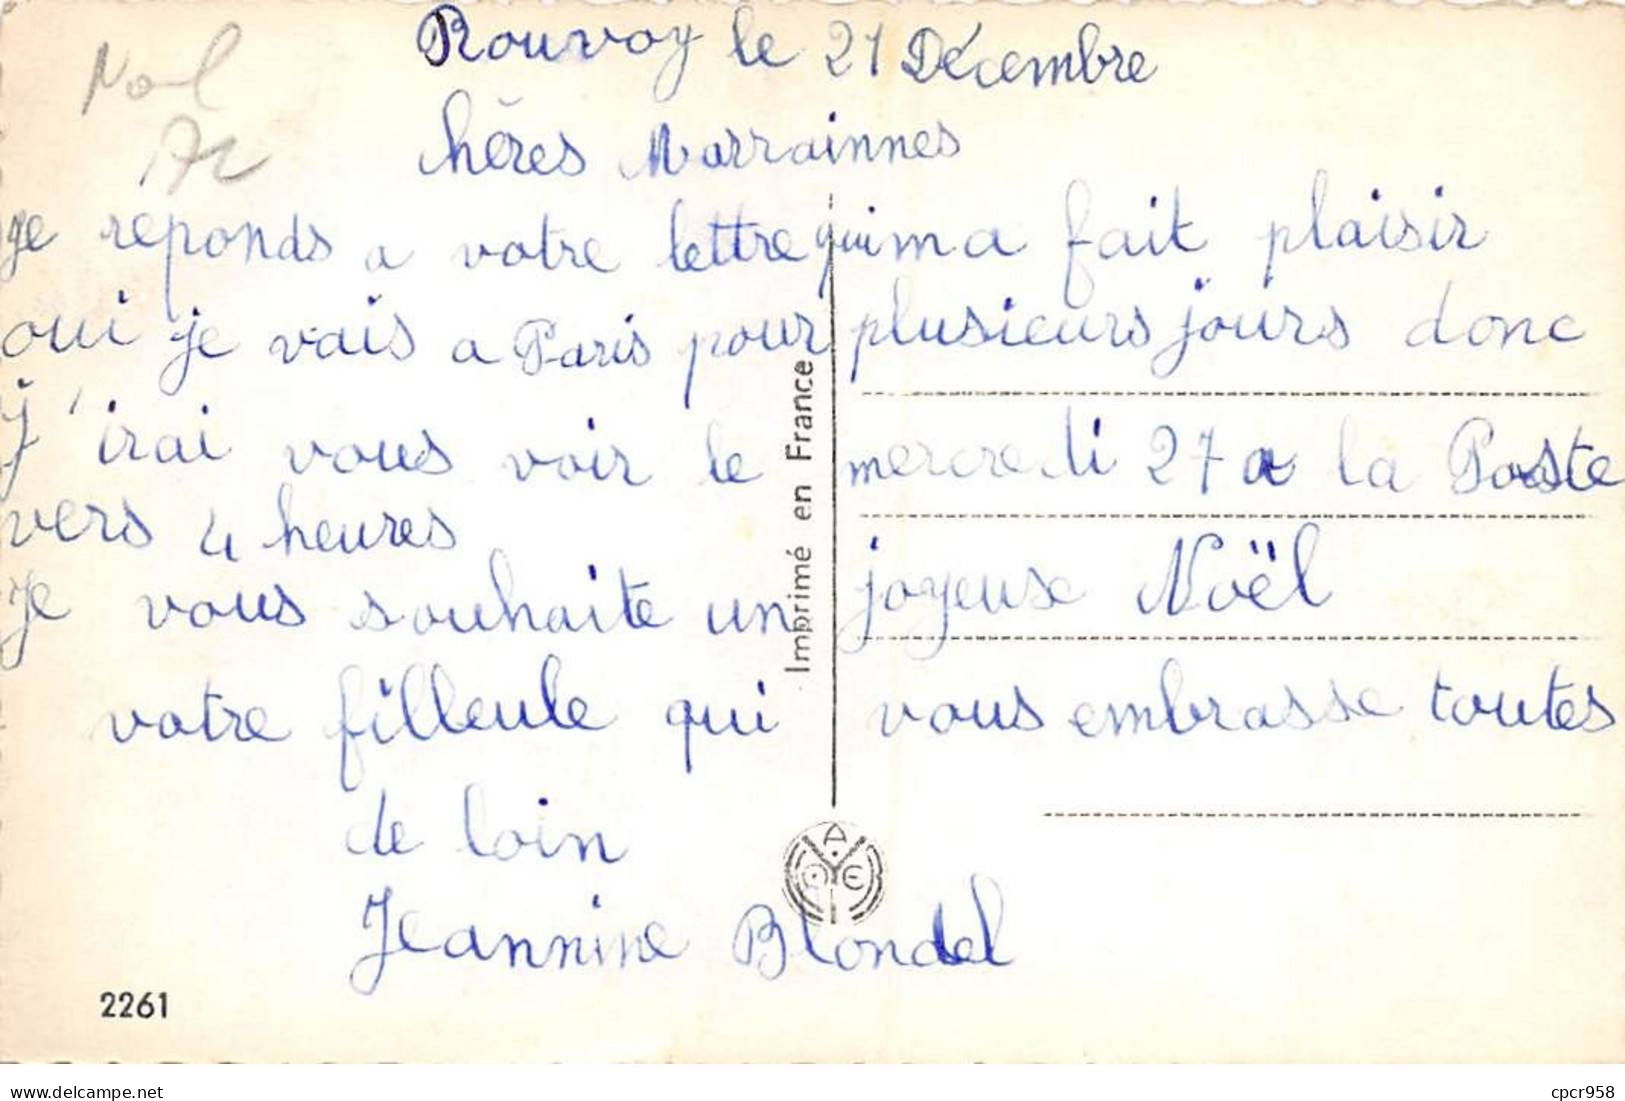 Rouvroy le 21 Décembre
hères Marrainnes
je reponds a votre lettre qui ma fait plaisir
oui je vais a Paris pour plusieurs jours donc
J'irai vous voir le mercredi 27 a la Poste
vers 4 heures
Je vous souhaite un joyeuse Noël
votre filleule qui vous embrasse toutes
de loin
Jeannine Blondel
Imprimé en France
2261
delcampe.net
cpcr958